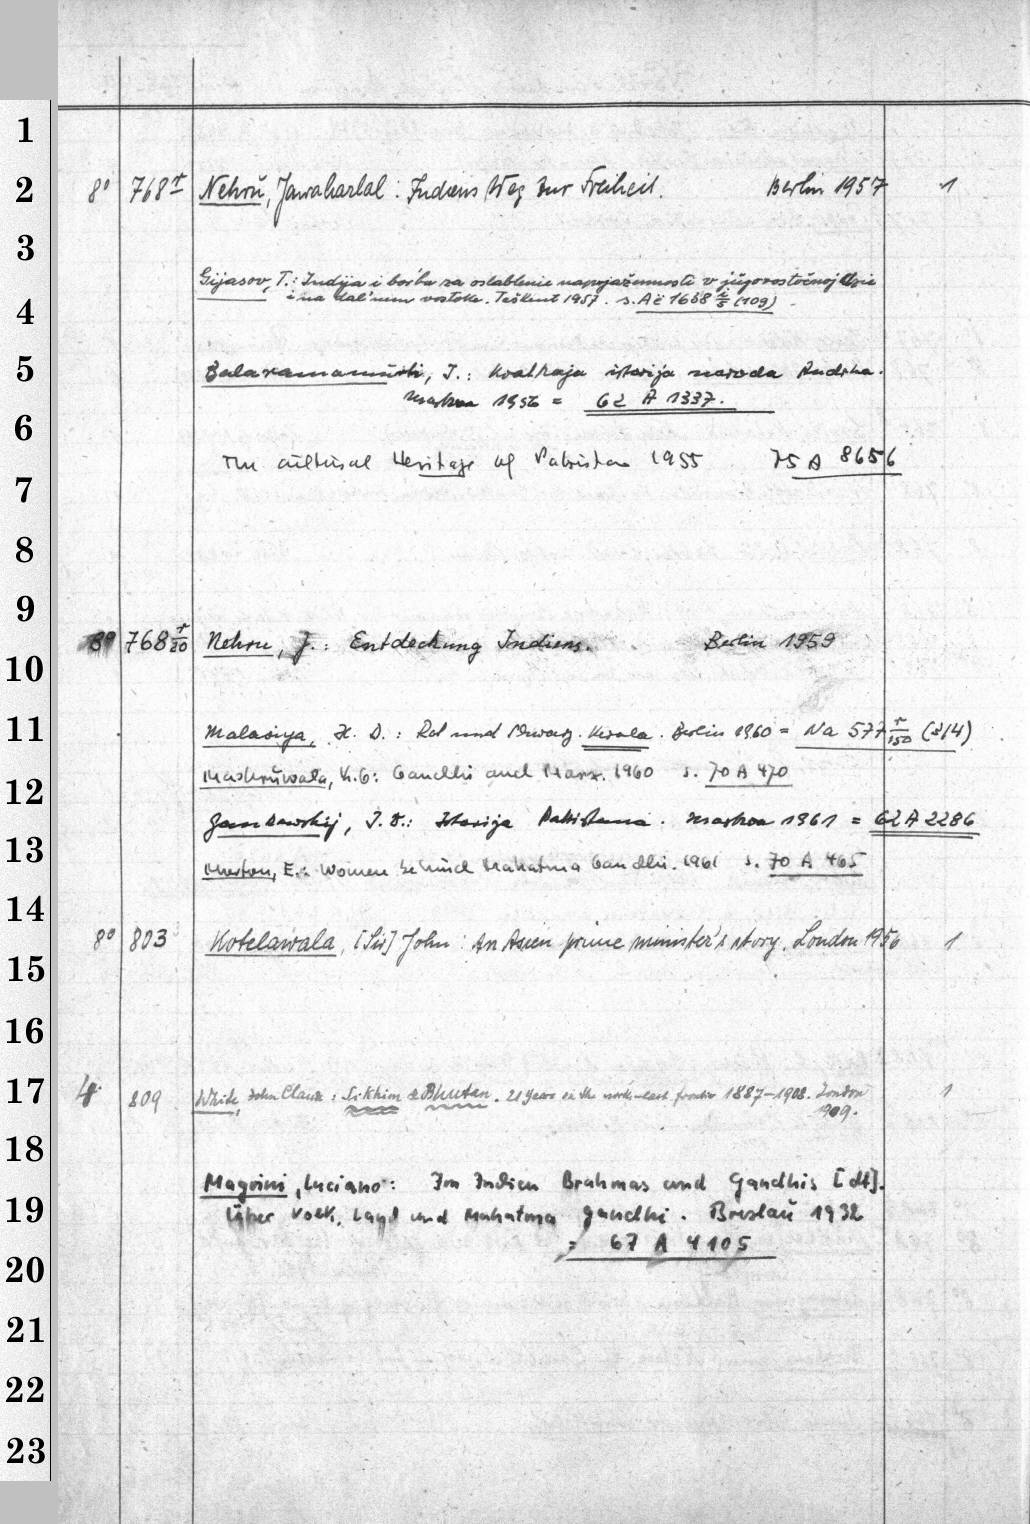 1
2
8° 768 r Nehrŭ, Jawaharlal: Indiens Weg zur Freiheit. Berlin 1957 1
3
Gijasov, T.: Indija i bor'ba za oslablenie naprjažennosti v jügovostočnoj Azii
4
i na dal'nem vostoke. Taškent 1957. s. Ač 1668 (109)
5
Balaramamürti, J.: Kratkaja istorija naroda Andhra.
Moskva 1956 = 62 A 1337.
6
The cultural Heritage of Pakistan 1955 75 A 8656
7
8
9
8° 768 r/20 Nehru, J.: Entdeckung Indiens. Berlin 1959
10
11
Malaviya, H. D.: Kerala. Berlin 1960 = Na 577 r/150 (3/4)
Mashrŭwala, K.G: Gandhi and Marx. 1960 s. 70 A 470
12
J. D.: Istorija Pakistana. Moskva 1961 = 62 A 2286
13
Morton, E.: Women behind Mahatma Gandhi. 1961 s. 70 A 465
14
8° 803 Kotelawala, [Sir] John: An Asian prime minister's story. London 1956 1
15
16
17
4 809 White, John Claude: Sikhim & Bhutan. 21 years on the north-east frontier 1887-1908. London 1
1909.
18
Magrini, Luciano: In Indien Brahmas und Gandhis [dt].
19
Über Volk, Land und Mahatma Gandhi. Breslaŭ 1932
= 67 A 4105
20
21
22
23